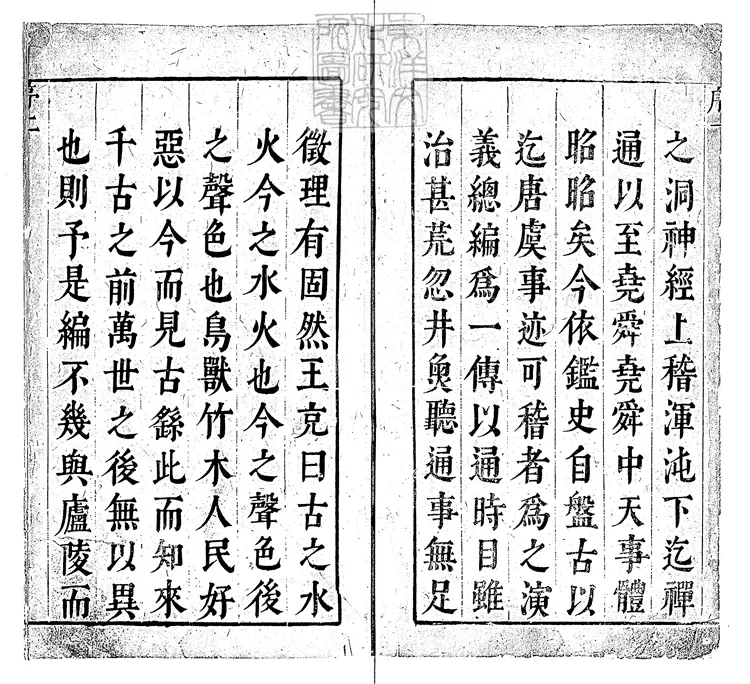 之洞神經上稽渾沌下迄禪
通以至堯舜堯舜中天事體
昭昭矣今依鑑史自盤古以
迄唐虞事迹可稽者爲之演
義總編爲一傳以通時目雖
治甚荒忽井奐聽通事無足
徵理有固然王充曰古之水
火今之水火也今之聲色後
之聲色也鳥獸竹木人民好
惡以今而見古繇此而知來
千古之前萬世之後無以異
也則予是編不幾與廬陵而
序一
序二